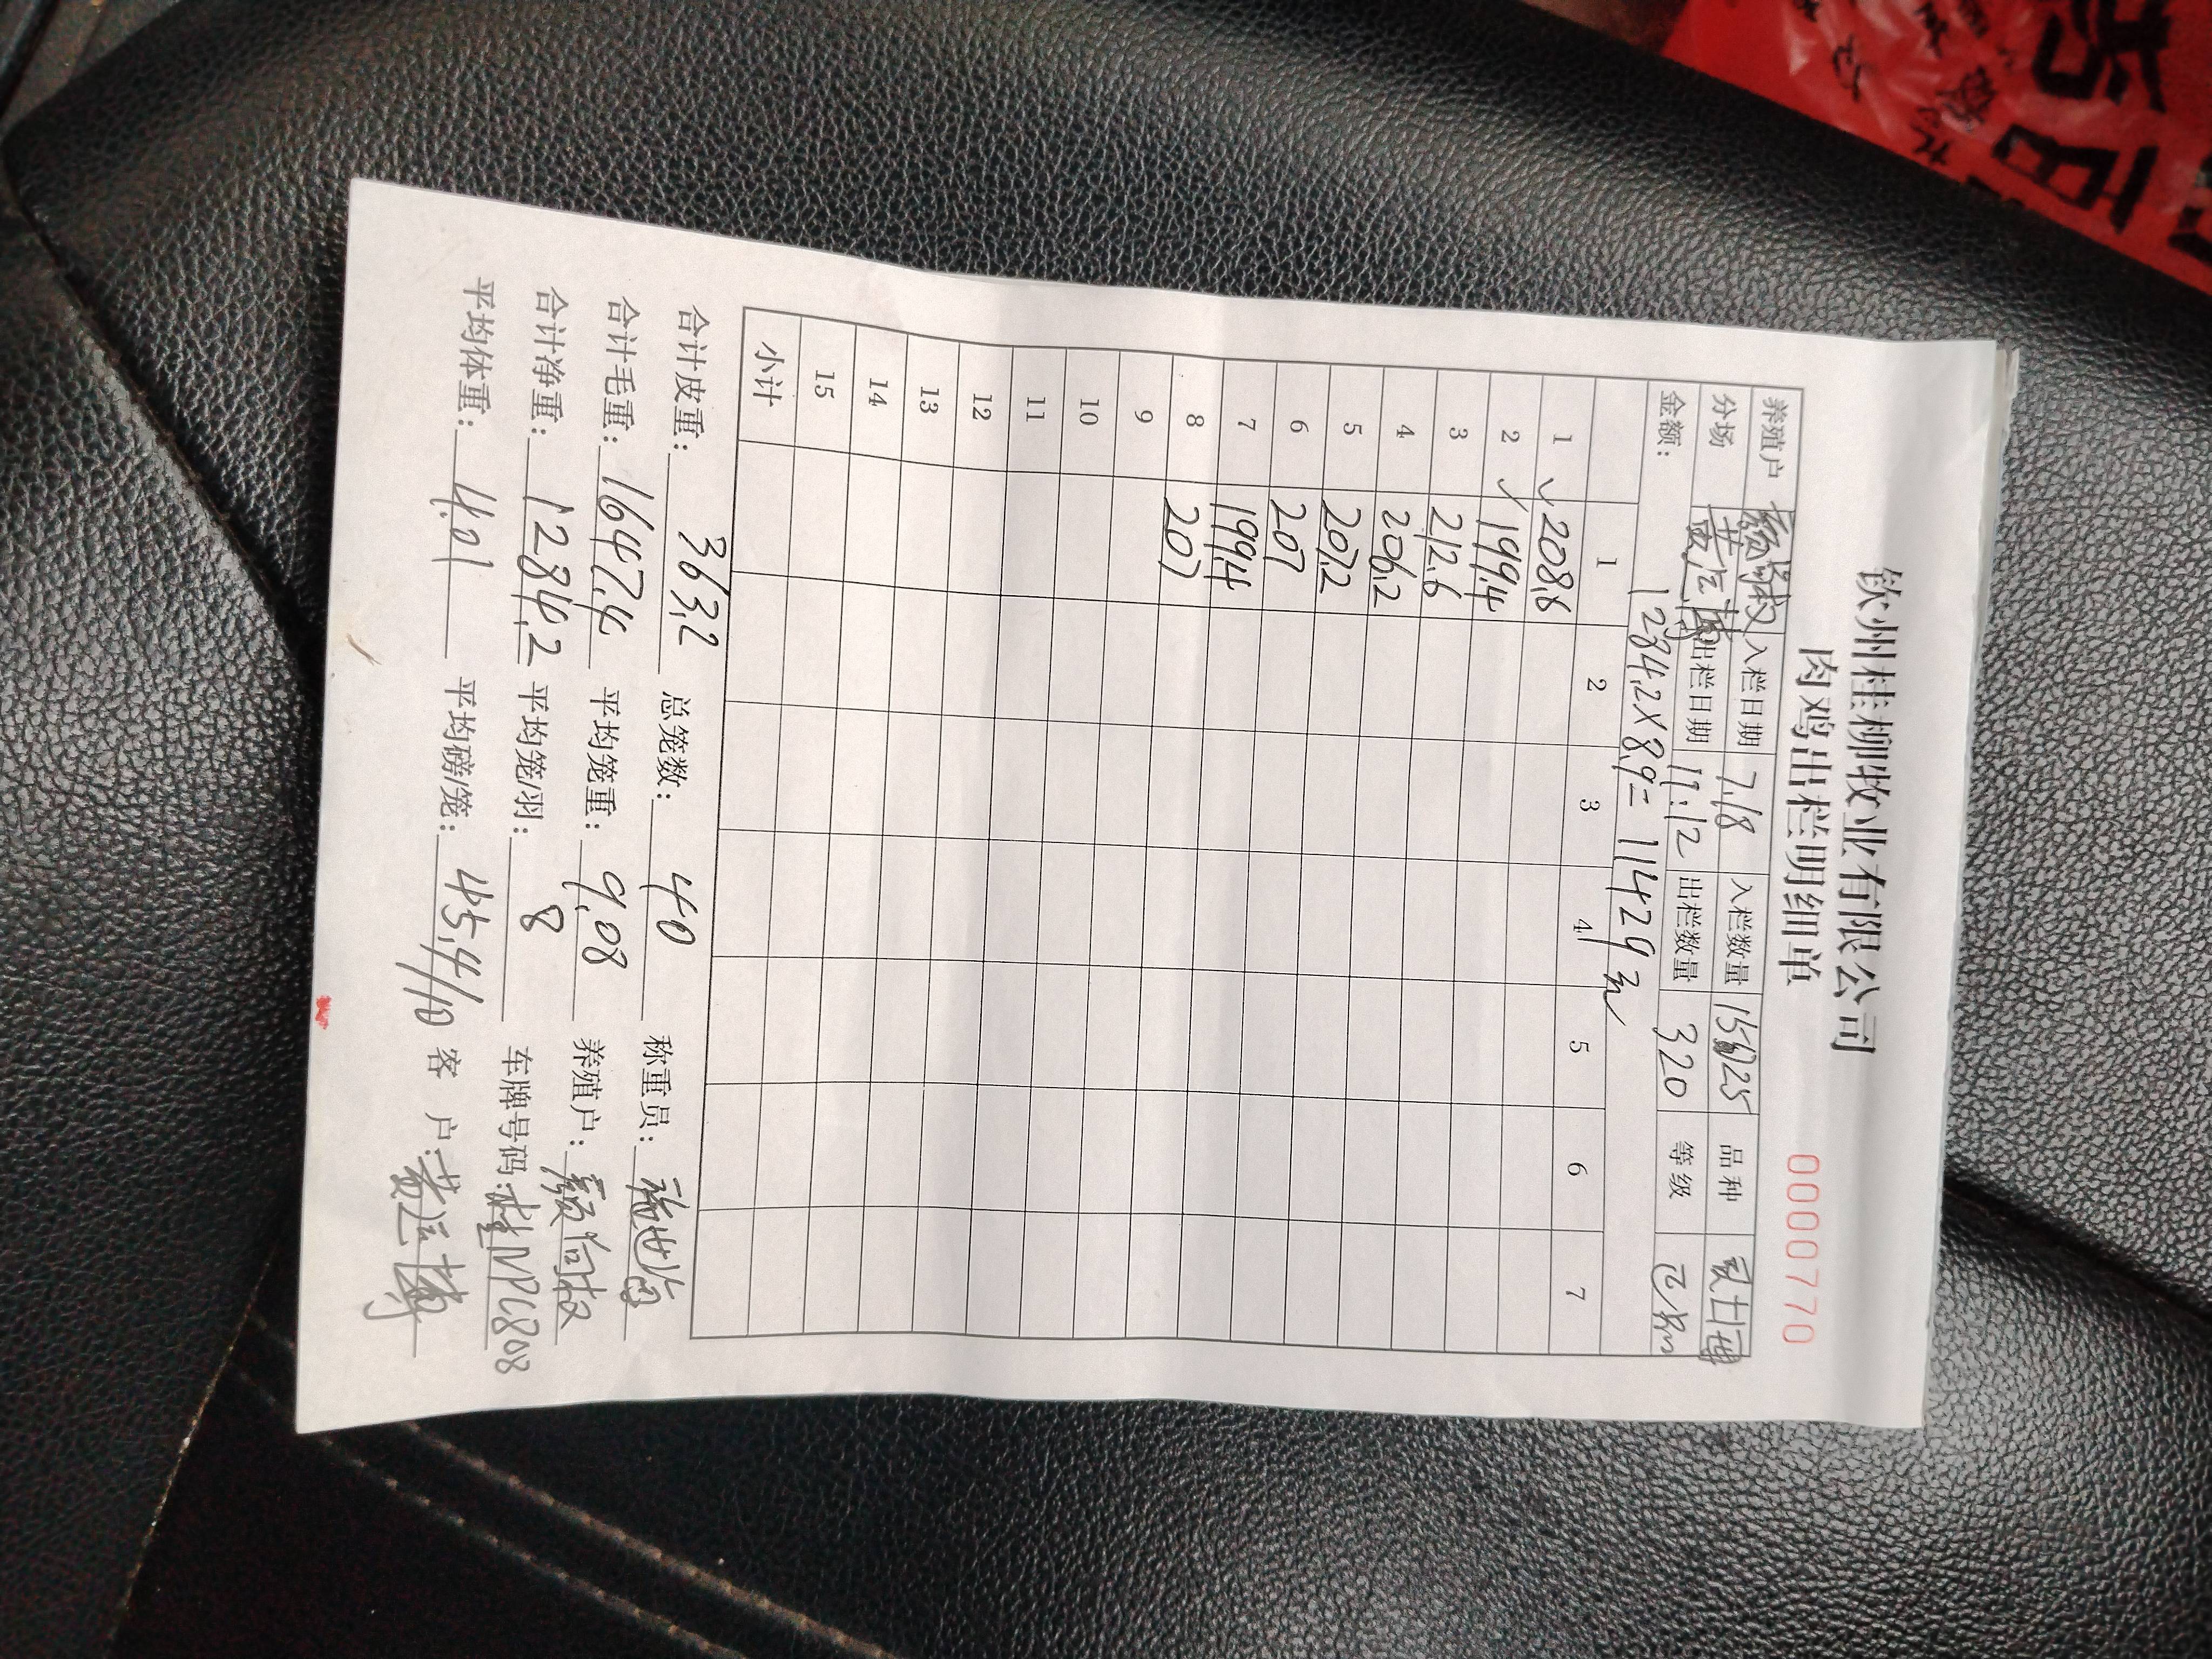 钦州桂柳牧业有限公司
肉鸡出栏明细单
0000770
养殖户 入栏日期 7.18 入栏数量 15025 品种
分场 出栏日期 11.12 出栏数量 320 等级
金额: 1284.2×8.9=11429元
1 2 3 4 5 6 7
1 ✓208.6
2 ✓199.4
3 212.6
4 206.2
5 207.2
6 207
7 199.4
8 207
9
10
11
12
13
14
15
小计
合计皮重: 363.2 总笼数: 40 称重员:
合计毛重: 1647.4 平均笼重: 9.08 养殖户:
合计净重: 1284.2 平均笼/羽: 8 车牌号码: 桂NPC808
平均体重: 4.01 平均磅/笼: 45.4/10 客 户: